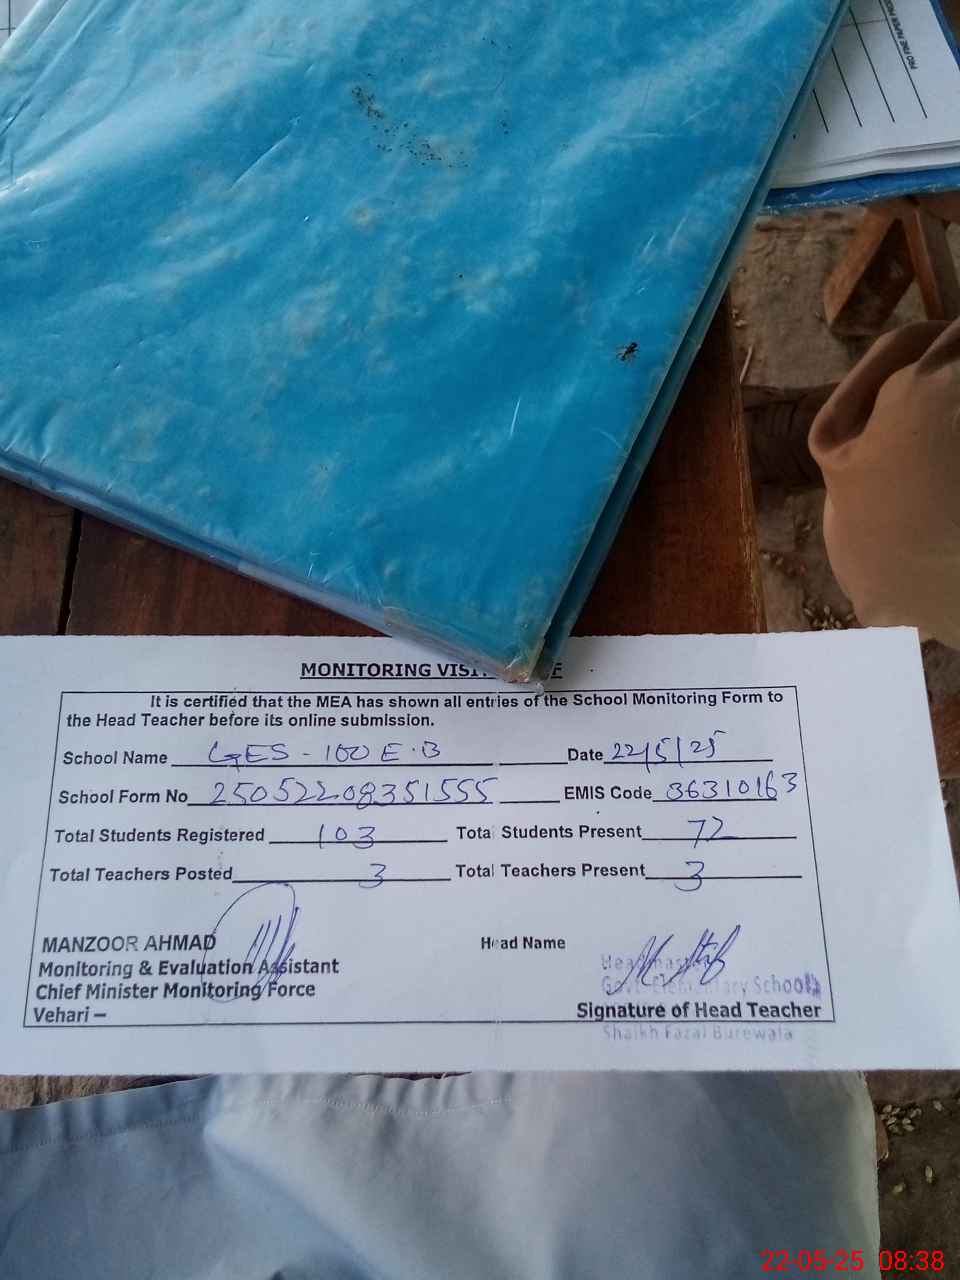 PRO FINE PAPER PROD
MONITORING VISI
It is certified that the MEA has shown all entries of the School Monitoring Form to
the Head Teacher before its online submission.
School Name GES - 100 E.B Date 22/5/25
School Form No 25052208351555 EMIS Code 36310163
Total Students Registered 103 Total Students Present 72
Total Teachers Posted 3 Total Teachers Present 3
MANZOOR AHMAD Head Name
Monitoring & Evaluation Assistant Headmaster
Chief Minister Monitoring Force Govt. Elementary School
Vehari – Signature of Head Teacher
Shaikh Fazal Burewala
22-05-25 08:38